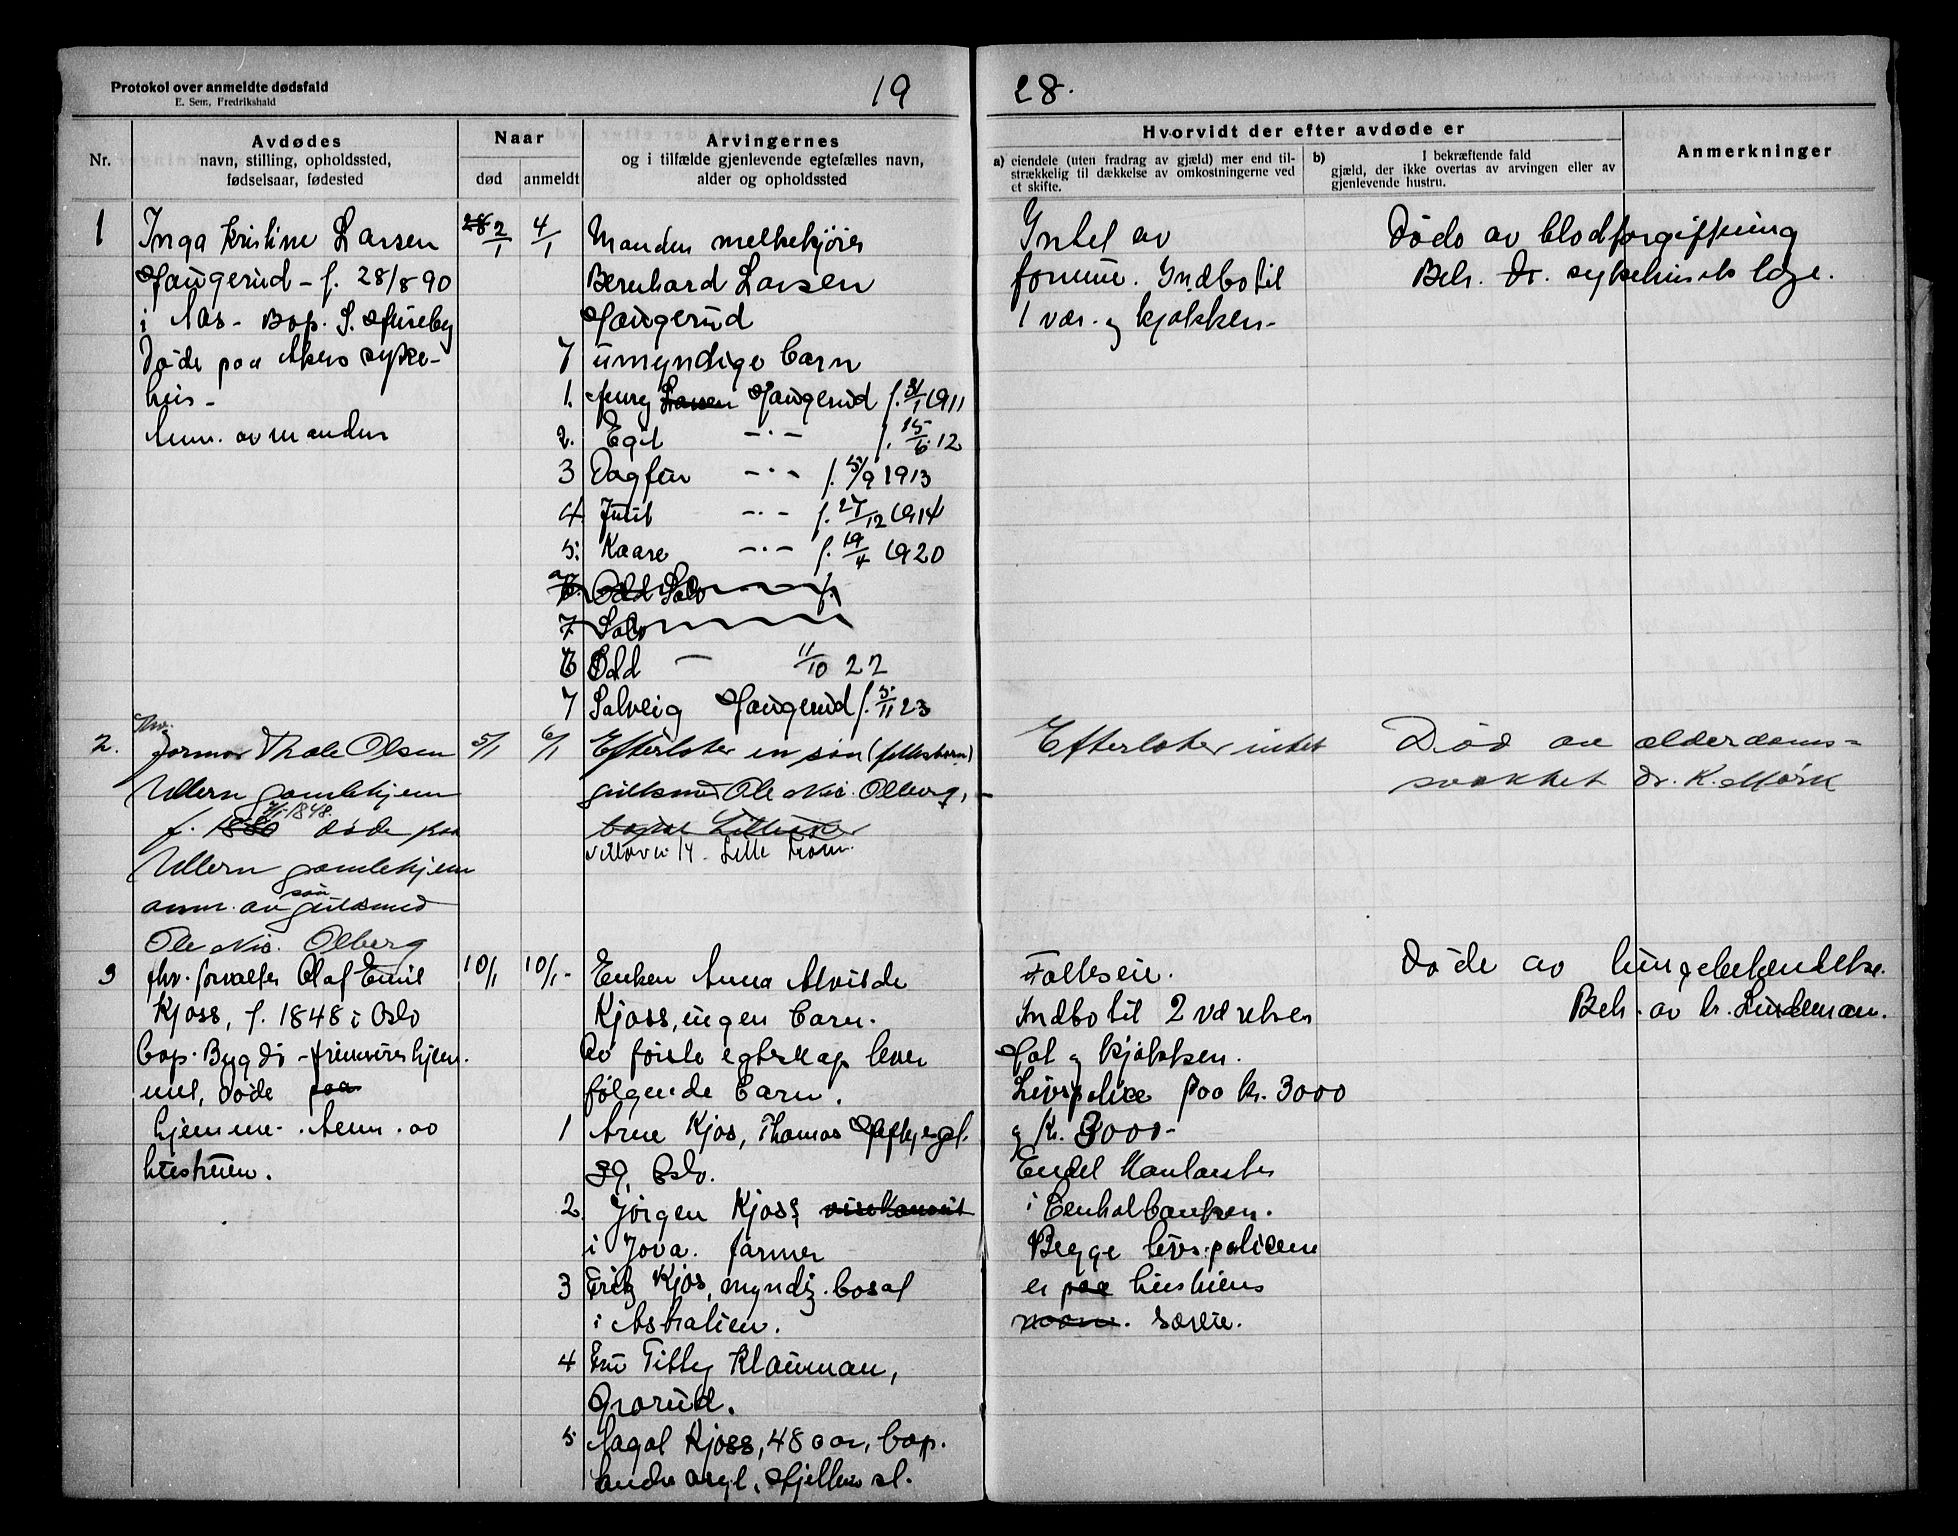 Protokol over anmeldte dødsfald
E. Sem, Fredrikshald
19 28.
Nr.
Avdødes
navn, stilling, opholdssted,
fødselsaar, fødested
Naar
død
anmeldt
Arvingernes
og i tilfælde gjenlevende egtefælles navn,
alder og opholdssted
Hvorvidt der efter avdøde er
a) eiendele (uten fradrag av gjæld) mer end til-
strækkelig til dækkelse av omkostningerne ved
et skifte.
b) I bekræftende fald
gjæld, der ikke overtas av arvingen eller av
gjenlevende hustru.
Anmerkninger
1
Inga Kristine Larsen
Haugerud - f. 28/8 90
i Aas - Bop. S. Huseby
Døde paa Akers syke-
hus -
Anm. av manden
28 2/1
4/1
Manden melkekjører
Bernhard Larsen
Haugerud
7 umyndige barn
1. Haugerud f. 1911
2. Egil -·- f. 15/6 12
3 Dagfin -·- f. 5/9 1913
4. -·- f. 27/12 1914
5. Kaare -·- f. 19/4 1920
Odd Solv f.
7 Solv
6 Odd — 11/10 22
7 Solveig Haugerud f. 5/11 23
Intet av
formue. Indbo til
1 vær. og kjøkken -
Døde av blodforgiftning
Beh. Dr. sykehusets læge.
2.
Thale Olsen
Ullern gamlehjem
f. 1880 1848. døde paa
Ullern gamlehjem
anm. av søn gulsmed
Ole Nic. Olberg
5/1
6/1
Efterlater en søn (fellesbarn)
gulsmed Ole Nic. Olberg, -
bopæl Lilleaker
14 - Lille
Efterlater intet
Død av alderdoms=
svakhet Dr. K. Mørk
3
fhv. forvalter Olaf Emil
Kjoss, f. 1848 i Oslo
bop. Bygdø - frimurerhjem-
met, døde paa
hjemme - Anm. av
hustruen.
10/1
10/1 -
Enken Anna Alvilde
Kjoss, ingen barn.
Av første egteskap lever
følgende barn.
1 Arne Kjos, Thomas Heftyesgt.
39, Oslo.
2. Jørgen Kjoss
i Jova. farmer
3 Fritz Kjos, myndig. bosat
i Astralien.
4 Fru Titty Klouman,
Grorud.
5 Aagot Kjoss, 48 aar, bop.
asyl, st.
Felleseie.
Indbo til 2 værelser
Hal og kjøkken.
Livspolice paa kr. 3000
og kr. 3000 -
Endel
i Centralbanken.
Begge livs.policene
er paa hustruens
navn. særeie.
Døde av lungebetændelse.
Beh. av dr. Lindeman.